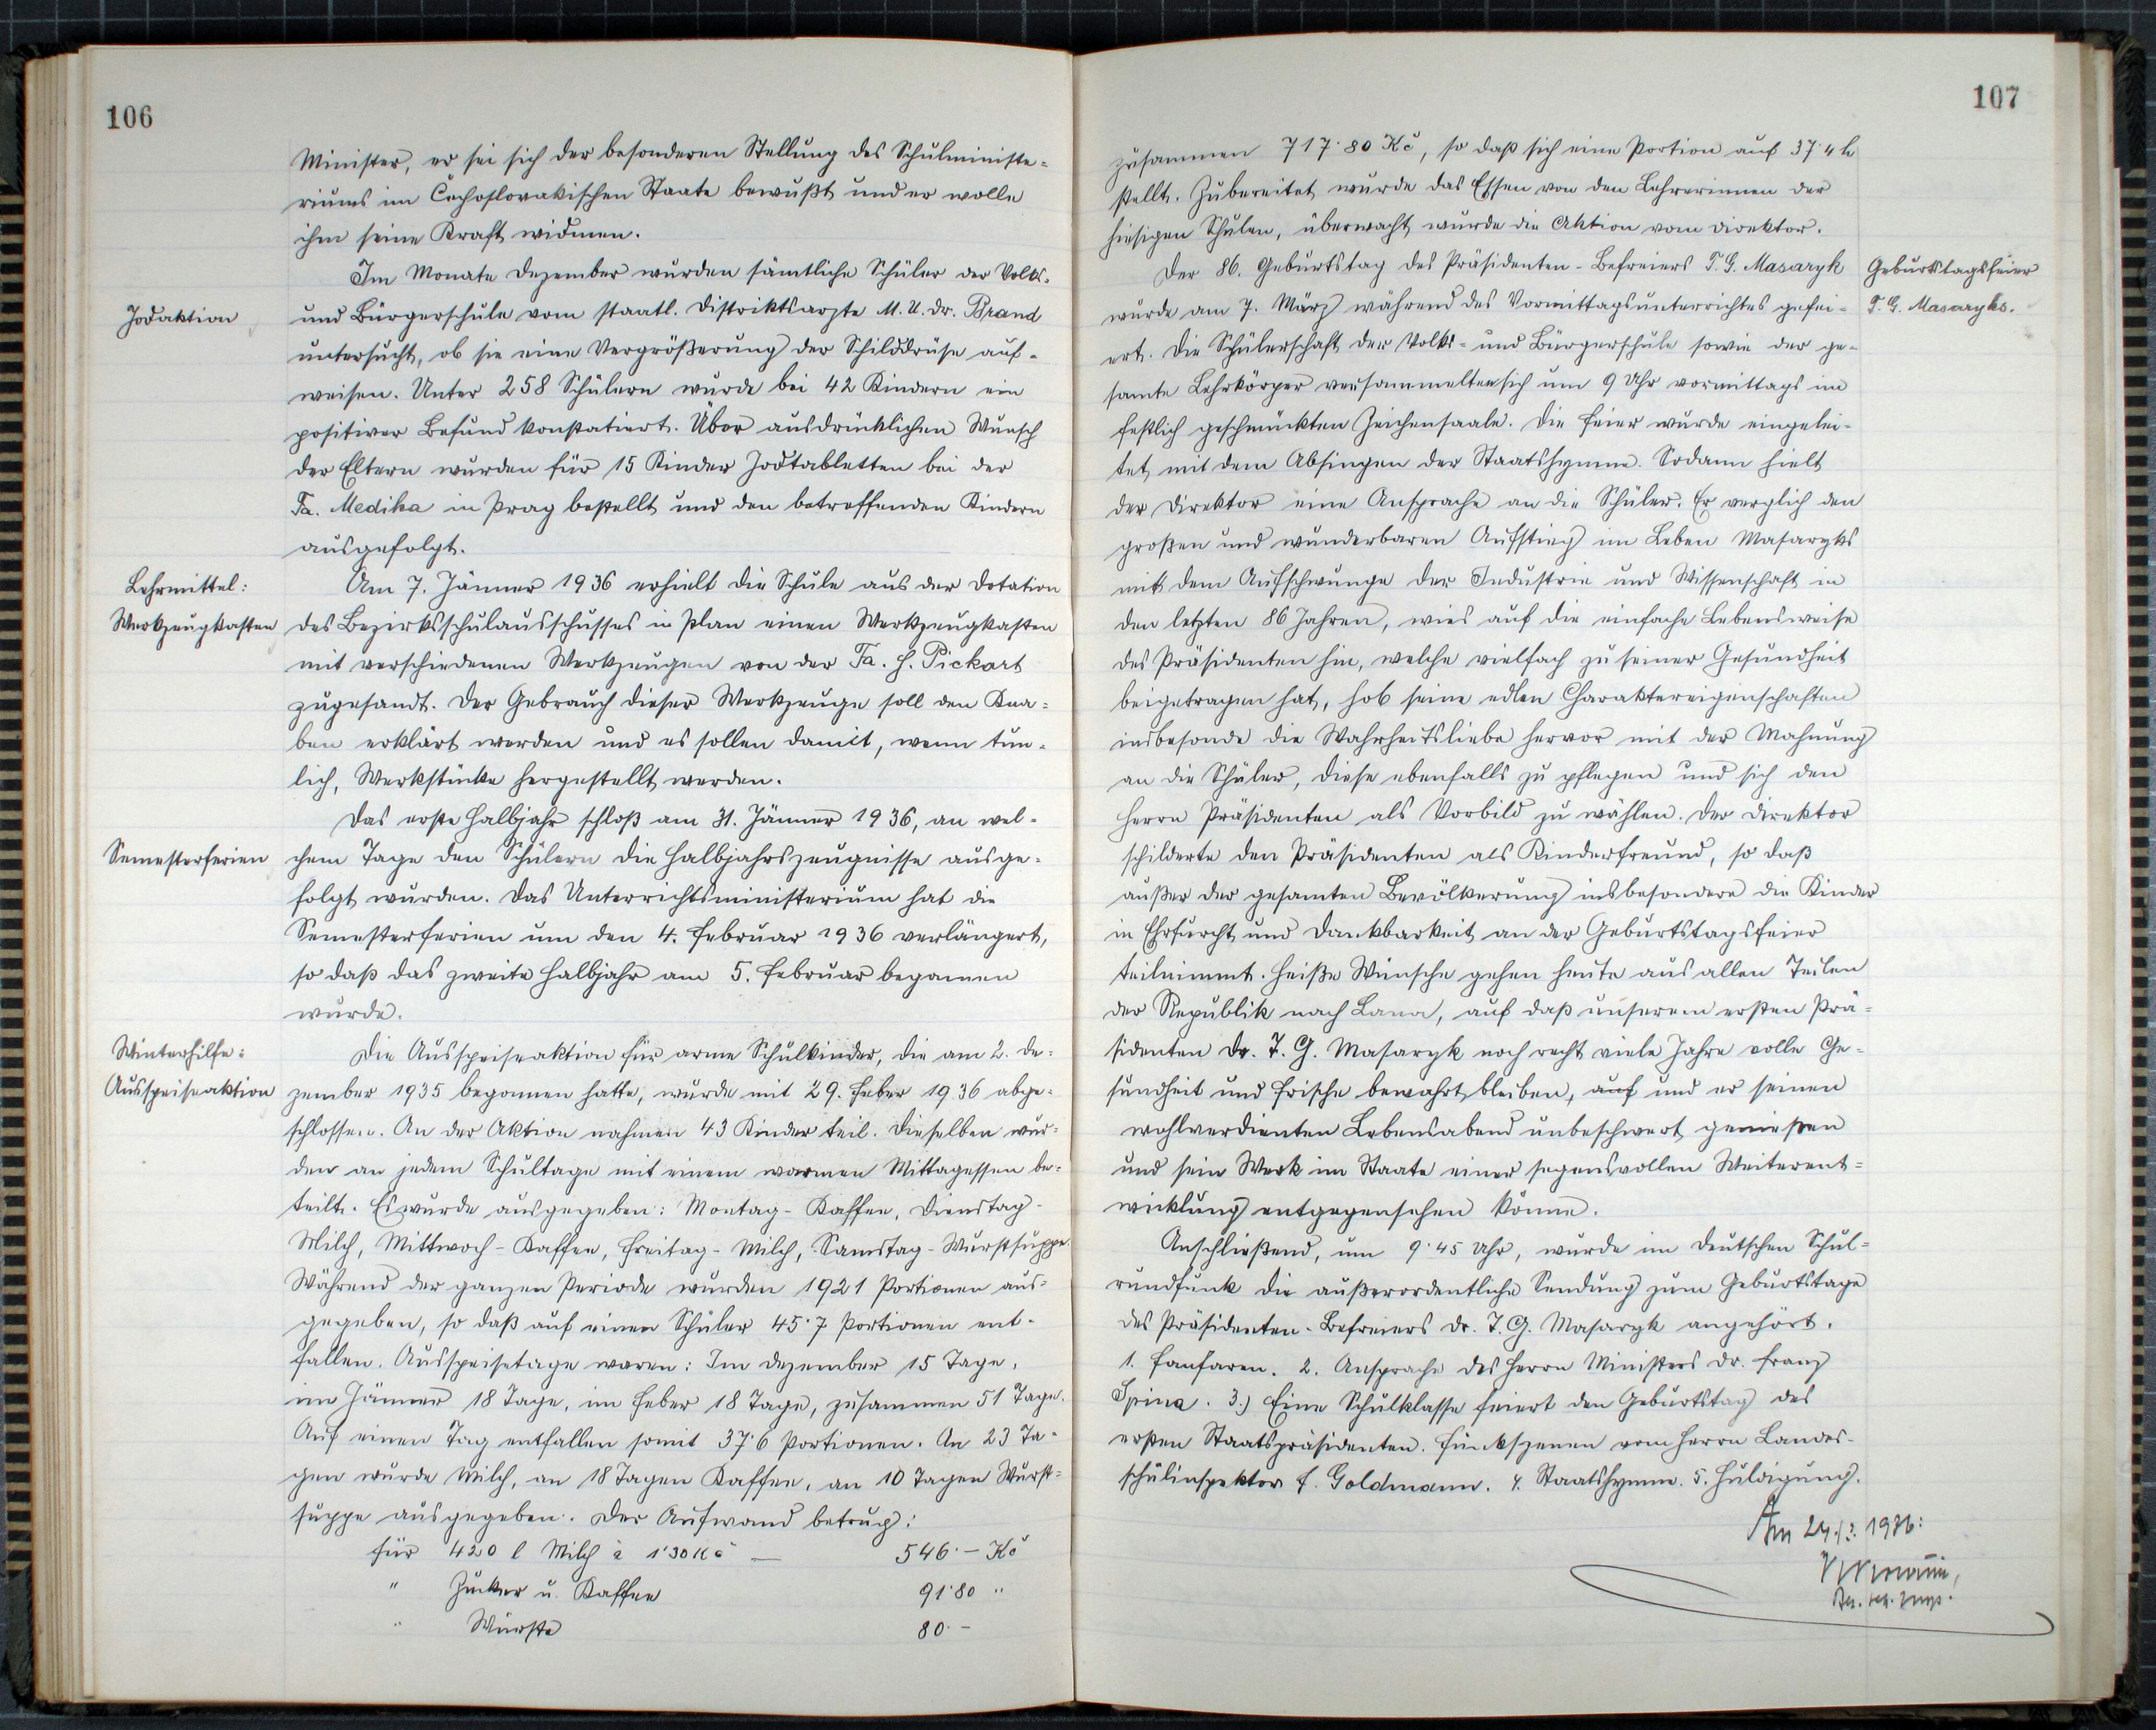 106
Minister, er sei sich der besonderen Stellung des Schulministe-
riums im Čechoslovakischen Staate bewußt und er wolle
ihm seine Kraft widmen.
Im Monate Dezember wurden sämtliche Schüler der Volks-
Jodaktion
und Bürgerschule vom staatl. Distriktsarzte M. U. Dr. Brand
untersucht, ob sie eine Vergrößerung der Schilddrüse auf-
weisen. Unter 258 Schülern wurde bei 42 Kindern ein
positiver Befund konstatiert. Über ausdrücklichen Wunsch
der Eltern wurden für 15 Kinder Jodtabletten bei der
Fa. Medika in Prag bestellt und den betreffenden Kindern
ausgefolgt.
Lehrmittel:
Am 7. Jänner 1936 erhielt die Schule aus der Dotation
Werkzeugkasten
des Bezirksschulausschusses in Plan einen Werkzeugkasten
mit verschiedenen Werkzeugen von der Fa. H. Pickart
zugesandt. Der Gebrauch dieser Werkzeuge soll den Kna-
ben erklärt werden und es sollen damit, wenn tun-
lich, Werkstücke hergestellt werden.
Das erste Halbjahr schloß am 31. Jänner 1936, an wel-
Semesterferien
chem Tage den Schülern die Halbjahrszeugnisse ausge-
folgt wurden. Das Unterrichtsministerium hat die
Semesterferien um den 4. Februar 1936 verlängert,
so daß das zweite Halbjahr am 5. Februar begonnen
wurde.
Winterhilfe:
Die Ausspeiseaktion für arme Schulkinder, die am 2. De-
Ausspeiseaktion
zember 1935 begonnen hatte, wurde mit 29. Feber 1936 abge-
schlossen. An der Aktion nahmen 43 Kinder teil. Dieselben wur-
den an jedem Schultage mit einem warmen Mittagessen be-
teilt. Es wurde ausgegeben: Montag - Kaffee, Dienstag -
Milch, Mittwoch - Kaffee, Freitag - Milch, Samstag - Wurstsuppe.
Während der ganzen Periode wurden 1921 Portionen aus-
gegeben, so daß auf einen Schüler 45·7 Portionen ent-
fallen. Ausspeisetage waren: Im Dezember 15 Tage,
im Jänner 18 Tage, im Feber 18 Tage, zusammen 51 Tage.
Auf einen Tag entfallen somit 37·6 Portionen. An 23 Ta-
gen wurde Milch, an 18 Tagen Kaffee, an 10 Tagen Wurst-
suppe ausgegeben. Der Aufwand betrug:
für 420 l Milch à 1·30 Kč — 546·— Kč
" Zucker u. Kaffee 91·80 "
" Würste 80·—
107
zusammen 717·80 Kč, so daß sich eine Portion auf 37·4 h
stellt. Zubereitet wurde das Essen von den Lehrerinnen der
hiesigen Schulen, überwacht wurde die Aktion vom Direktor.
Der 86. Geburtstag des Präsidenten-Befreiers T. G. Masaryk
Geburtstagsfeier
wurde am 7. März während des Vormittagsunterrichtes gefei-
T. G. Masaryks.
ert. Die Schülerschaft der Volks- und Bürgerschule sowie der ge-
samte Lehrkörper versammelten sich um 9 Uhr vormittags im
festlich geschmückten Zeichensaale. Die Feier wurde eingelei-
tet mit dem Absingen der Staatshymne. Sodann hielt
der Direktor eine Ansprache an die Schüler. Er verglich den
großen und wunderbaren Aufstieg im Leben Masaryks
mit dem Aufschwunge der Industrie und Wissenschaft in
den letzten 86 Jahren, wies auf die einfache Lebensweise
des Präsidenten hin, welche vielfach zu seiner Gesundheit
beigetragen hat, hob seine edlen Charaktereigenschaften
insbesonde die Wahrheitsliebe hervor mit der Mahnung
an die Schüler, diese ebenfalls zu pflegen und sich den
Herrn Präsidenten als Vorbild zu wählen. Der Direktor
schilderte den Präsidenten als Kinderfreund, so daß
außer der gesamten Bevölkerung insbesondere die Kinder
in Ehrfurcht und Dankbarkeit an der Geburtstagsfeier
teilnimmt. Heiße Wünsche gehen heute aus allen Teilen
der Republik nach Lana, auf daß unserem ersten Prä-
sidenten Dr. T. G. Masaryk noch recht viele Jahre volle Ge-
sundheit und Frische bewahrt bleiben, auf und er seinen
wohlverdienten Lebensabend unbeschwert genießen
und sein Werk im Staate einer segensvollen Weiterent-
wicklung entgegensehen könne.
Anschließend, um 9·45 Uhr, wurde im deutschen Schul-
rundfunk die außerordentliche Sendung zum Geburtstage
des Präsidenten-Befreiers Dr. T. G. Masaryk angehört.
1. Fanfaren. 2. Ansprache des Herrn Ministers Dr. Franz
Spina. 3.) Eine Schulklasse feiert den Geburtstag des
ersten Staatspräsidenten. Funkszenen vom Herrn Landes-
schulinspektor F. Goldmann. 4. Staatshymne. 5. Huldigung.
Am 24./3. 1936: